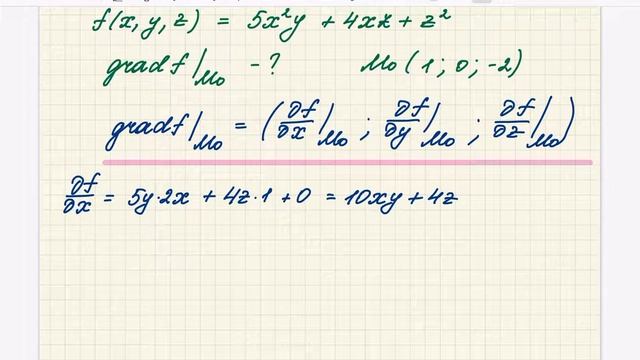 f(x, y, z) = 5x²y + 4xz + z²
gradf|M₀ - ? M₀(1; 0; -2)
gradf|M₀ = (∂f/∂x|M₀ ; ∂f/∂y|M₀ ; ∂f/∂z|M₀)
∂f/∂x = 5y·2x + 4z·1 + 0 = 10xy + 4z